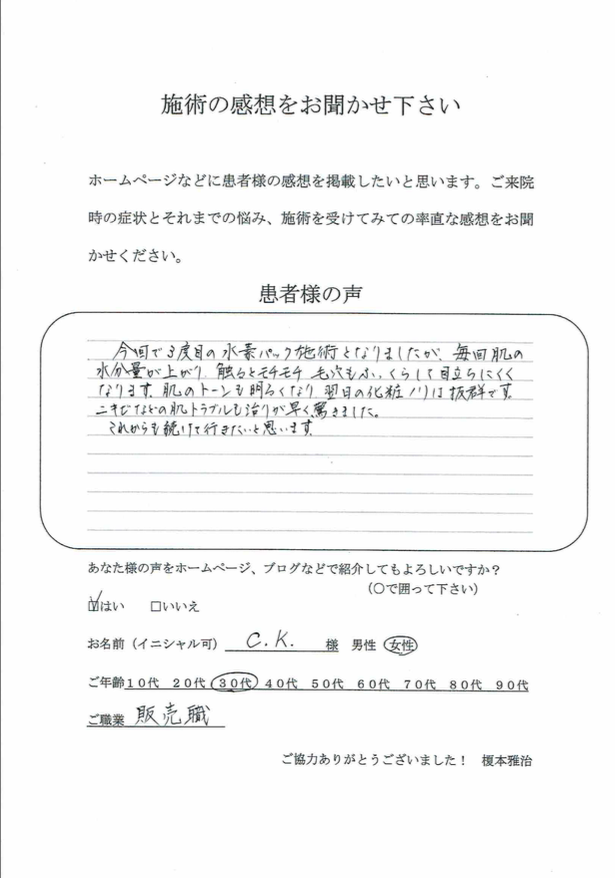 施術の感想をお聞かせ下さい
ホームページなどに患者様の感想を掲載したいと思います。ご来院
時の症状とそれまでの悩み、施術を受けてみての率直な感想をお聞
かせください。
患者様の声
今回で3度目の水素パック施術となりましたが、毎回肌の
水分量が上がり 触るとモチモチ 毛穴もふっくらして目立ちにくく
なります。肌のトーンも明るくなり 翌日の化粧ノリは抜群です。
ニキビなどの肌トラブルも治りが早く驚きました。
これからも続けて行きたいと思います。
あなた様の声をホームページ、ブログなどで紹介してもよろしいですか？
（○で囲って下さい）
☑はい □いいえ
お名前（イニシャル可） C.K. 様 男性 女性
ご年齢10代 20代 30代 40代 50代 60代 70代 80代 90代
ご職業 販売職
ご協力ありがとうございました！ 榎本雅治